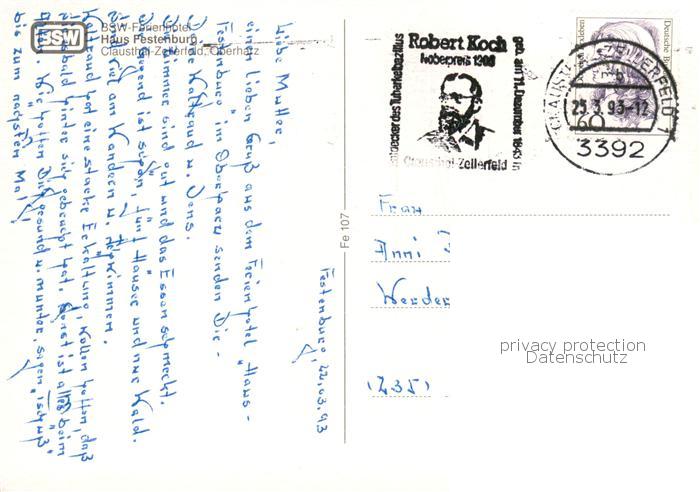 BSW
BSW-Ferienhotel
Haus Festenburg
Clausthal-Zellerfeld, Oberharz
Festenburg, 22.03.93
Liebe Mutter,
einen lieben Gruß aus dem Ferienhotel "Haus-
Festenburg" im Oberharz senden Dir -
Waltraud u. Jens.
Zimmer sind gut und das Essen schmeckt.
Gegend ist schön, fünf Häuser und nur Wald.
viel am Wandern u. Schwimmen.
Waltraud hat eine starke Erkältung, wollen hoffen, daß
bald hinter sich gebracht hat. Sonst ist alles beim
Wir hoffen Dich gesund u. munter, sagen "Tschüß"
bis zum nächsten Mal!
Fe 107
Entdecker des Tuberkelbazillus
Robert Koch
Nobelpreis 1905
geb. am 11. Dezember 1843 in
Clausthal-Zellerfeld
Deutsche
60
CLAUSTHAL-ZELLERFELD 1
mb
25.3.93-12
3392
Frau
Anni
Werder
privacy protection
Datenschutz